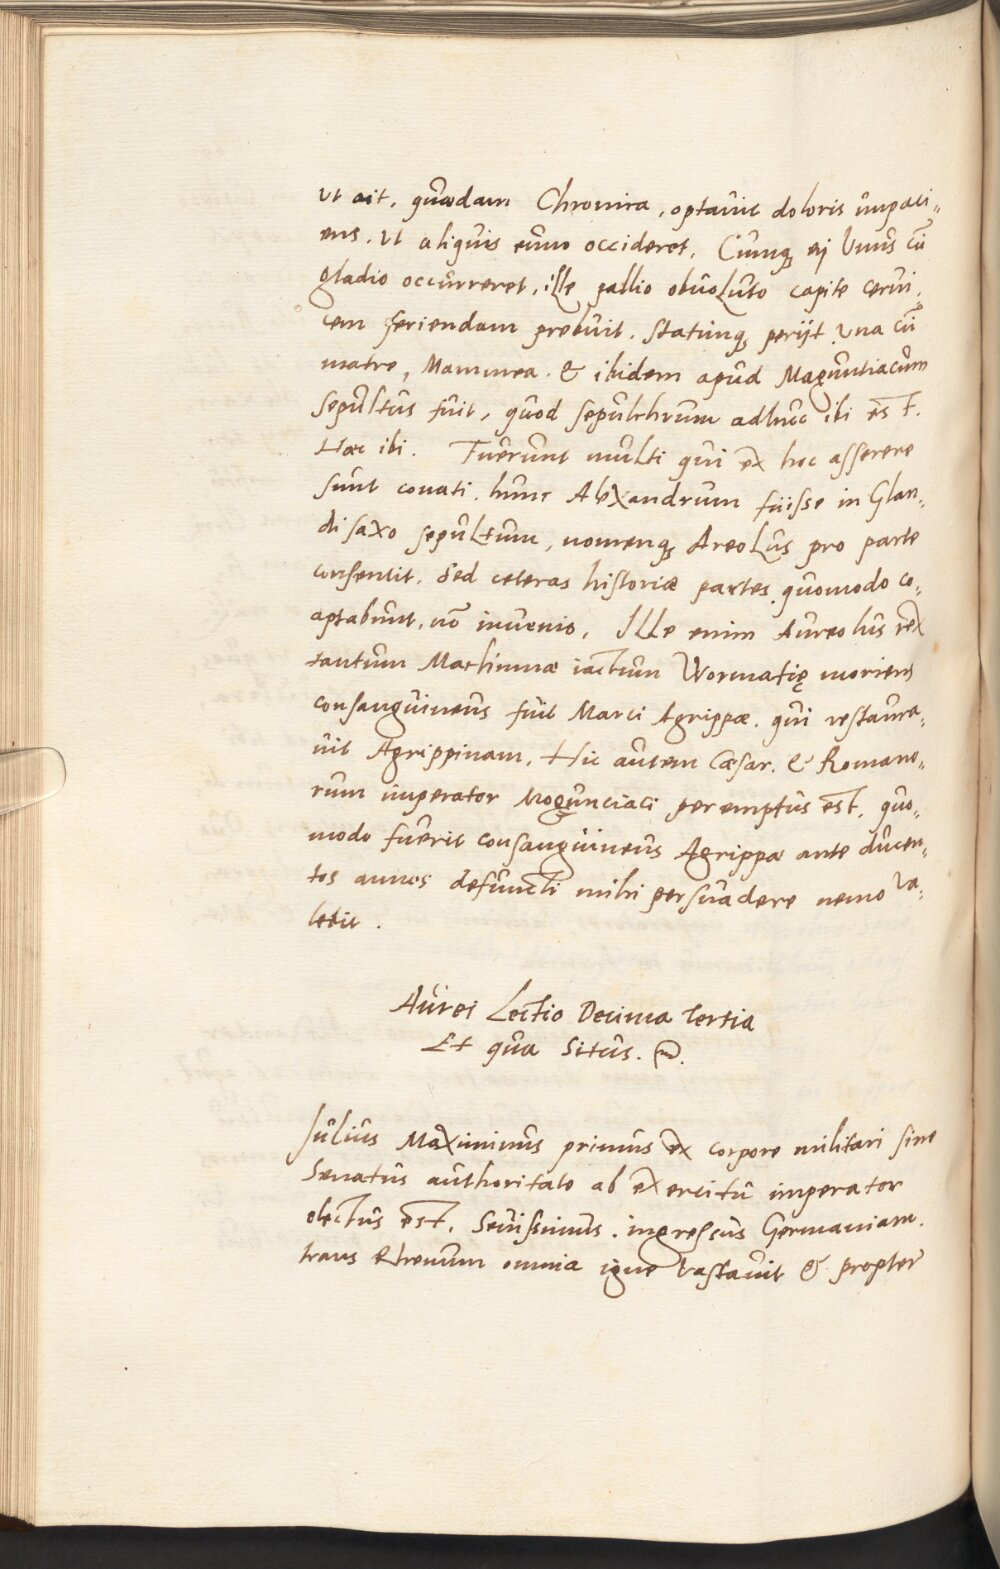 ut ait, quædam Chronica, optavit doloris impati„
ens, ut aliquis eum occideret. Cumq₃ ej unus cū
gladio occurreret, ille pallio obvoluto capite cervi„
cem feriendam prebuit. statimq₃ perijt una cū
matre, Mammea. & ibidem apud Maguntiacum
sepultus fuit, quod sepulchrum adhuc ibi est.
Hæc ibi. Fuerunt multi qui ex hoc asserere
sunt conati, hunc Alexandrum fuisse in Glan„
di saxo sepultum, nomenq₃ Areolus pro parte
consentit. Sed ceteras historiæ partes quomodo co„
aptabunt, nō invenio. Ille enim Aureolus rex
tantum Machinnæ iactum Wormatię moriens
consanguineus fuit Marci Agrippæ. qui restaura„
vit Agrippinam. Hic autem Cæsar. & Romano„
rum imperator Mogunciaci peremptus est. quo„
modo fuerit consanguineus Agrippæ ante ducen„
tos annos defuncti mihi persuadere nemo va„
lebit.
Aurei Lectio Decima tertia
Et qua situs.
Julius Maximinus primus ex corpore militari sine
Senatus authoritate ab exercitu imperator
electus est. Sevissimus. ingressus Germaniam.
trans Rhenum omnia igne vastavit & propter